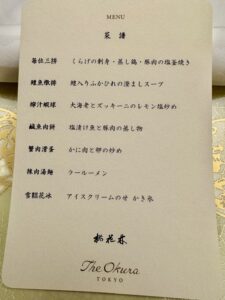 MENU
菜譜
毎位三拼 くらげの刺身・蒸し鶏・豚肉の塩釜焼き
鮑魚燉排 鮑入りふかひれの澄ましスープ
檸汁蝦球 大海老とズッキーニのレモン塩炒め
鹹魚肉餅 塩漬け魚と豚肉の蒸し物
蟹肉滑蛋 かに肉と卵の炒め
辣肉湯麺 ラールーメン
雪糕花氷 アイスクリームのせ かき氷
桃花林
The Okura
TOKYO